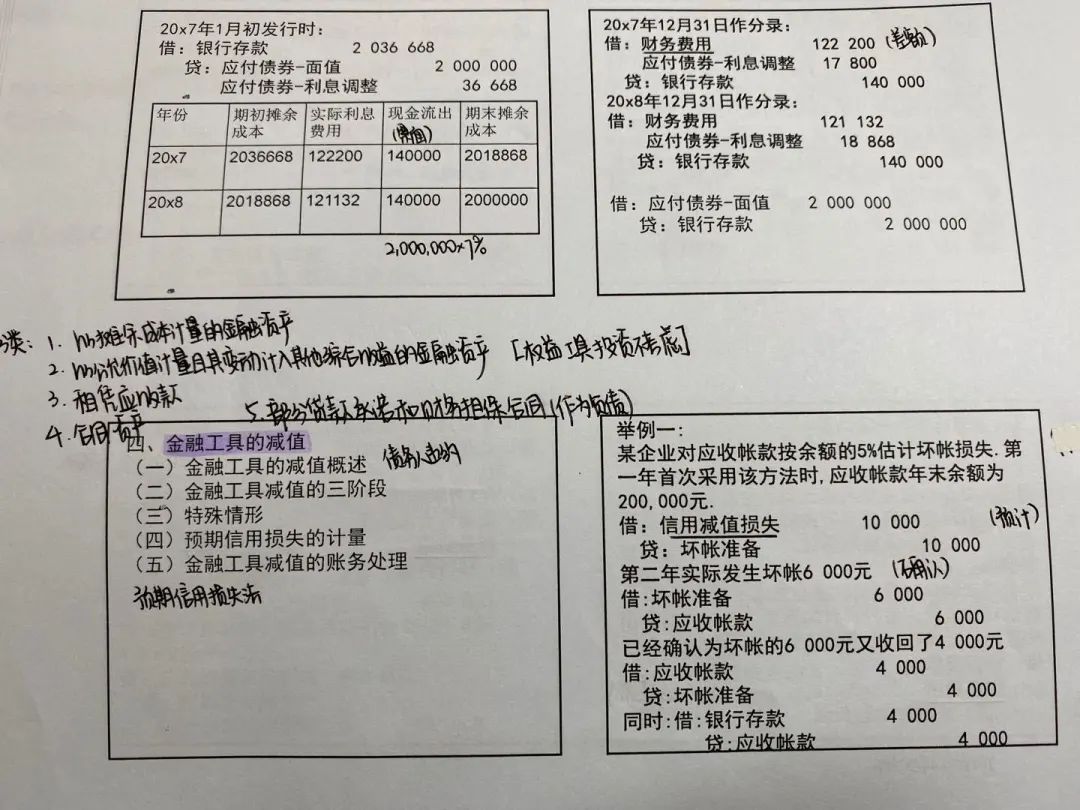 20x7年1月初发行时:
借: 银行存款 2 036 668
贷: 应付债券-面值 2 000 000
应付债券-利息调整 36 668
年份 期初摊余成本 实际利息费用 现金流出 期末摊余成本
(票面)
20x7 2036668 122200 140000 2018868
20x8 2018868 121132 140000 2000000
2,000,000×7%
20x7年12月31日作分录:
借: 财务费用 122 200 (差额)
应付债券-利息调整 17 800
贷: 银行存款 140 000
20x8年12月31日作分录:
借: 财务费用 121 132
应付债券-利息调整 18 868
贷: 银行存款 140 000
借: 应付债券-面值 2 000 000
贷: 银行存款 2 000 000
类: 1. 以摊余成本计量的金融资产
2. 以公允价值计量且其变动计入其他综合收益的金融资产 [权益工具投资不考虑]
3. 租赁应收款
4. 合同资产
5. 部分贷款承诺和财务担保合同(作为负债)
四、金融工具的减值
(一) 金融工具的减值概述 债务人违约
(二) 金融工具减值的三阶段
(三) 特殊情形
(四) 预期信用损失的计量
(五) 金融工具减值的账务处理
预期信用损失法
举例一:
某企业对应收帐款按余额的5%估计坏帐损失.第
一年首次采用该方法时,应收帐款年末余额为
200,000元.
借: 信用减值损失 10 000 (预计)
贷: 坏帐准备 10 000
第二年实际发生坏帐6 000元 (确认)
借:坏帐准备 6 000
贷:应收帐款 6 000
已经确认为坏帐的6 000元又收回了4 000元
借:应收帐款 4 000
贷:坏帐准备 4 000
同时:借:银行存款 4 000
贷:应收帐款 4 000